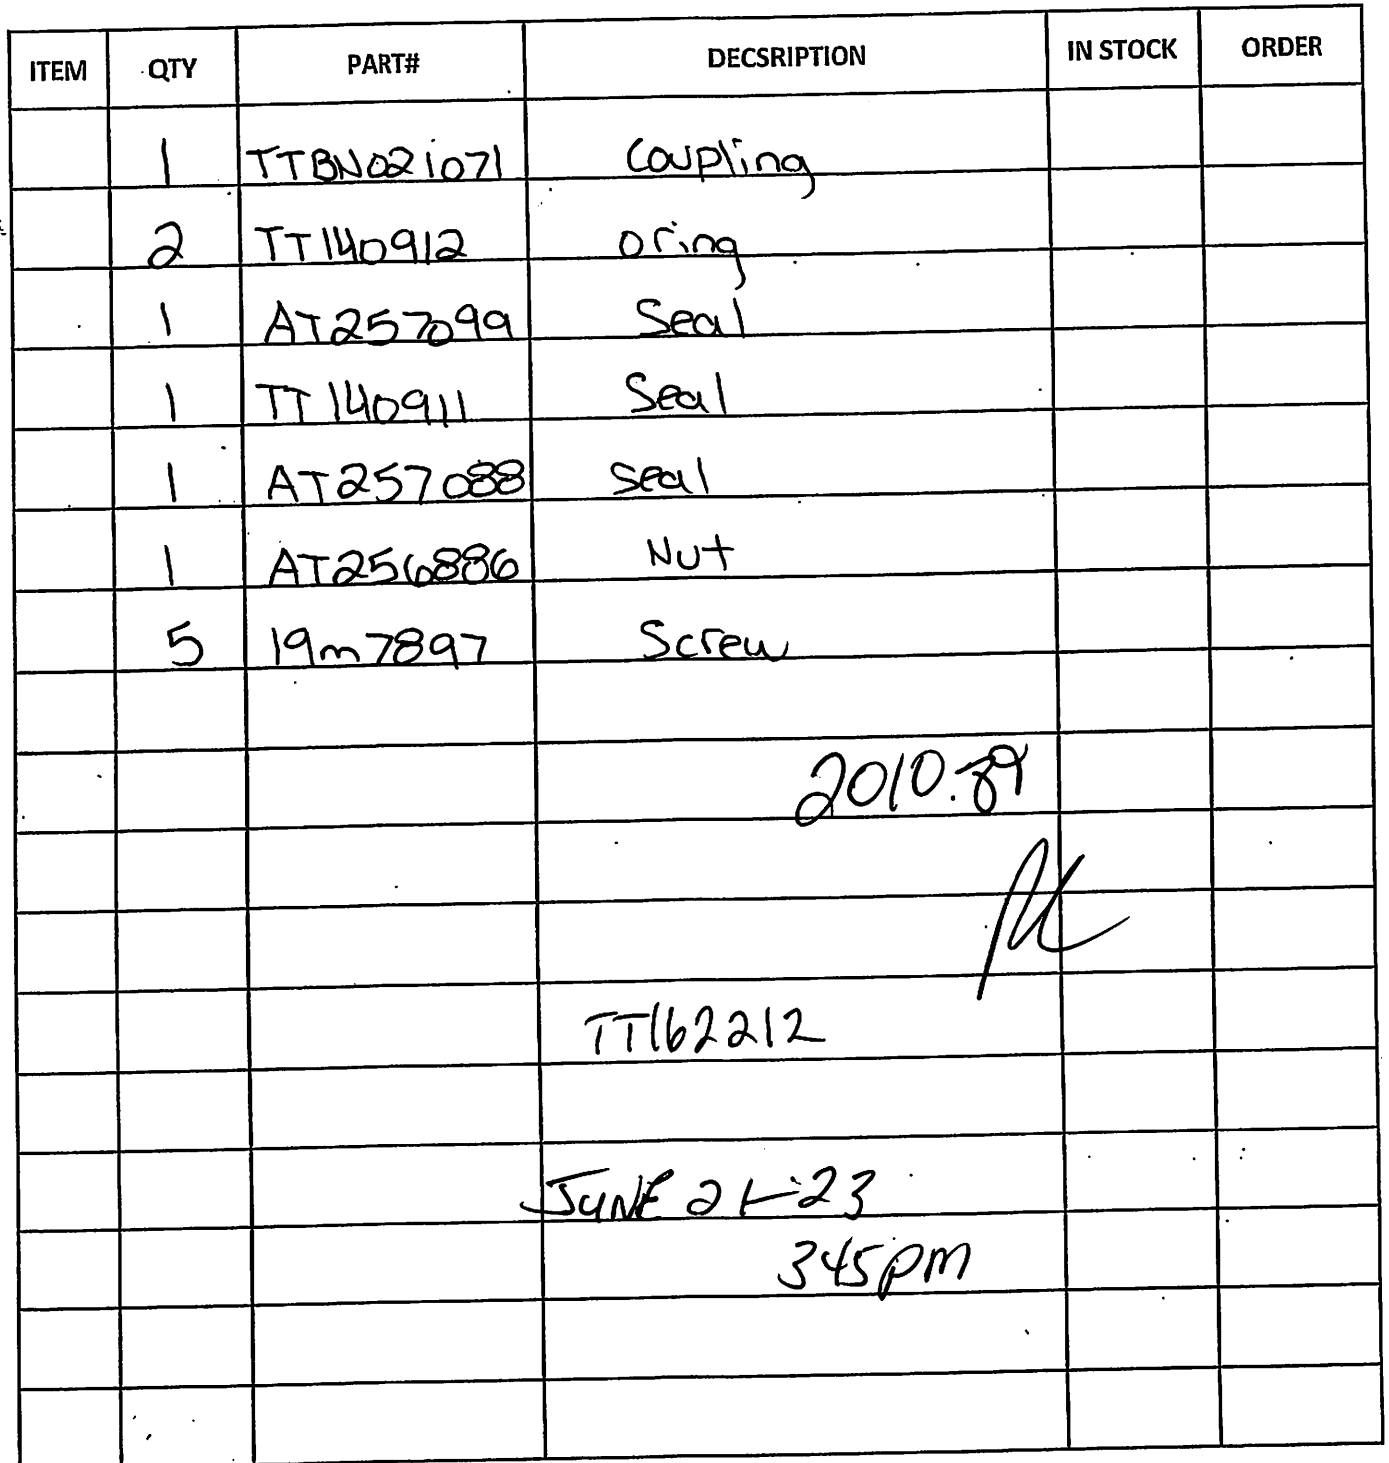 ITEM QTY PART# DECSRIPTION IN STOCK ORDER
1 TTBN021071 Coupling
2 TT140912 oring
1 AT257099 Seal
1 TT140911 Seal
1 AT257088 Seal
1 AT256886 Nut
5 19m7897 Screw
2010.89
TT162212
JUNE 21-23
345pm